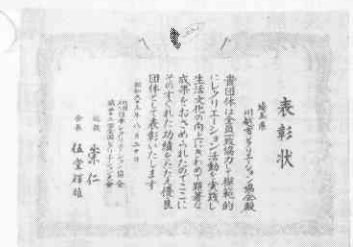 表彰状
埼玉県
川越市レクリエーション協会殿
貴団体は全員一致協力して模範的
にレクリエーション活動を実践し
生活文化の向上にきわめて顕著な
成果をおさめられたのでここに
そのすぐれた功績をたたえ優良
団体として表彰いたします
昭和 年八月二十日
日本レクリエーション協会
総裁 崇仁
会長